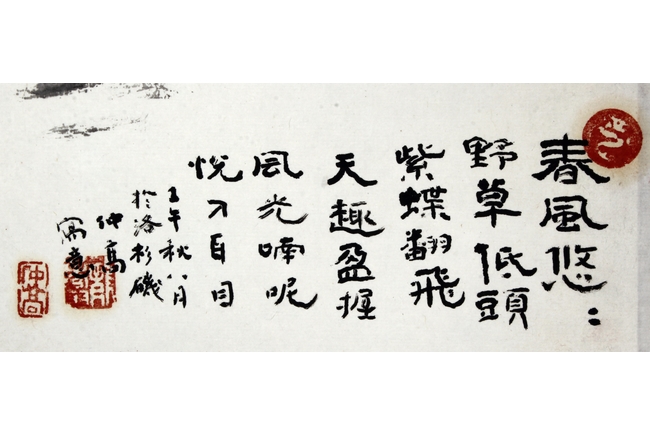 春風悠〻
野草低頭
紫蝶翻飛
天趣盈握
風光喃呢
悅人耳目
壬午秋八月
於洛杉磯
仲高
寫意
仲高